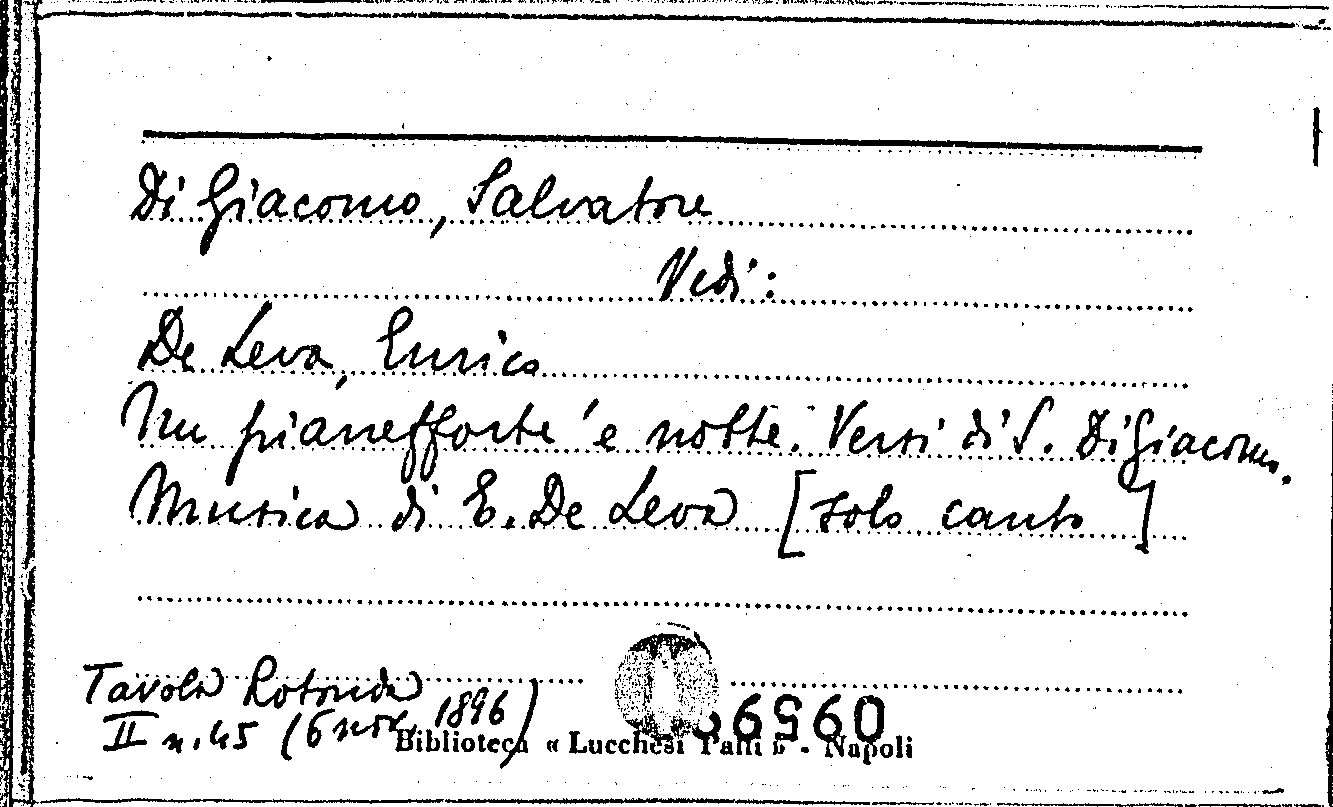 Di Giacomo, Salvatore
Vedi:
De Leva, Enrico
Nu pianefforte 'e notte. Versi di S. Di Giacomo.
Musica di E. De Leva [solo canto]
Tavola Rotonda
II n. 45 (6 nov. 1896)
Biblioteca « Lucchesi Palli » - Napoli